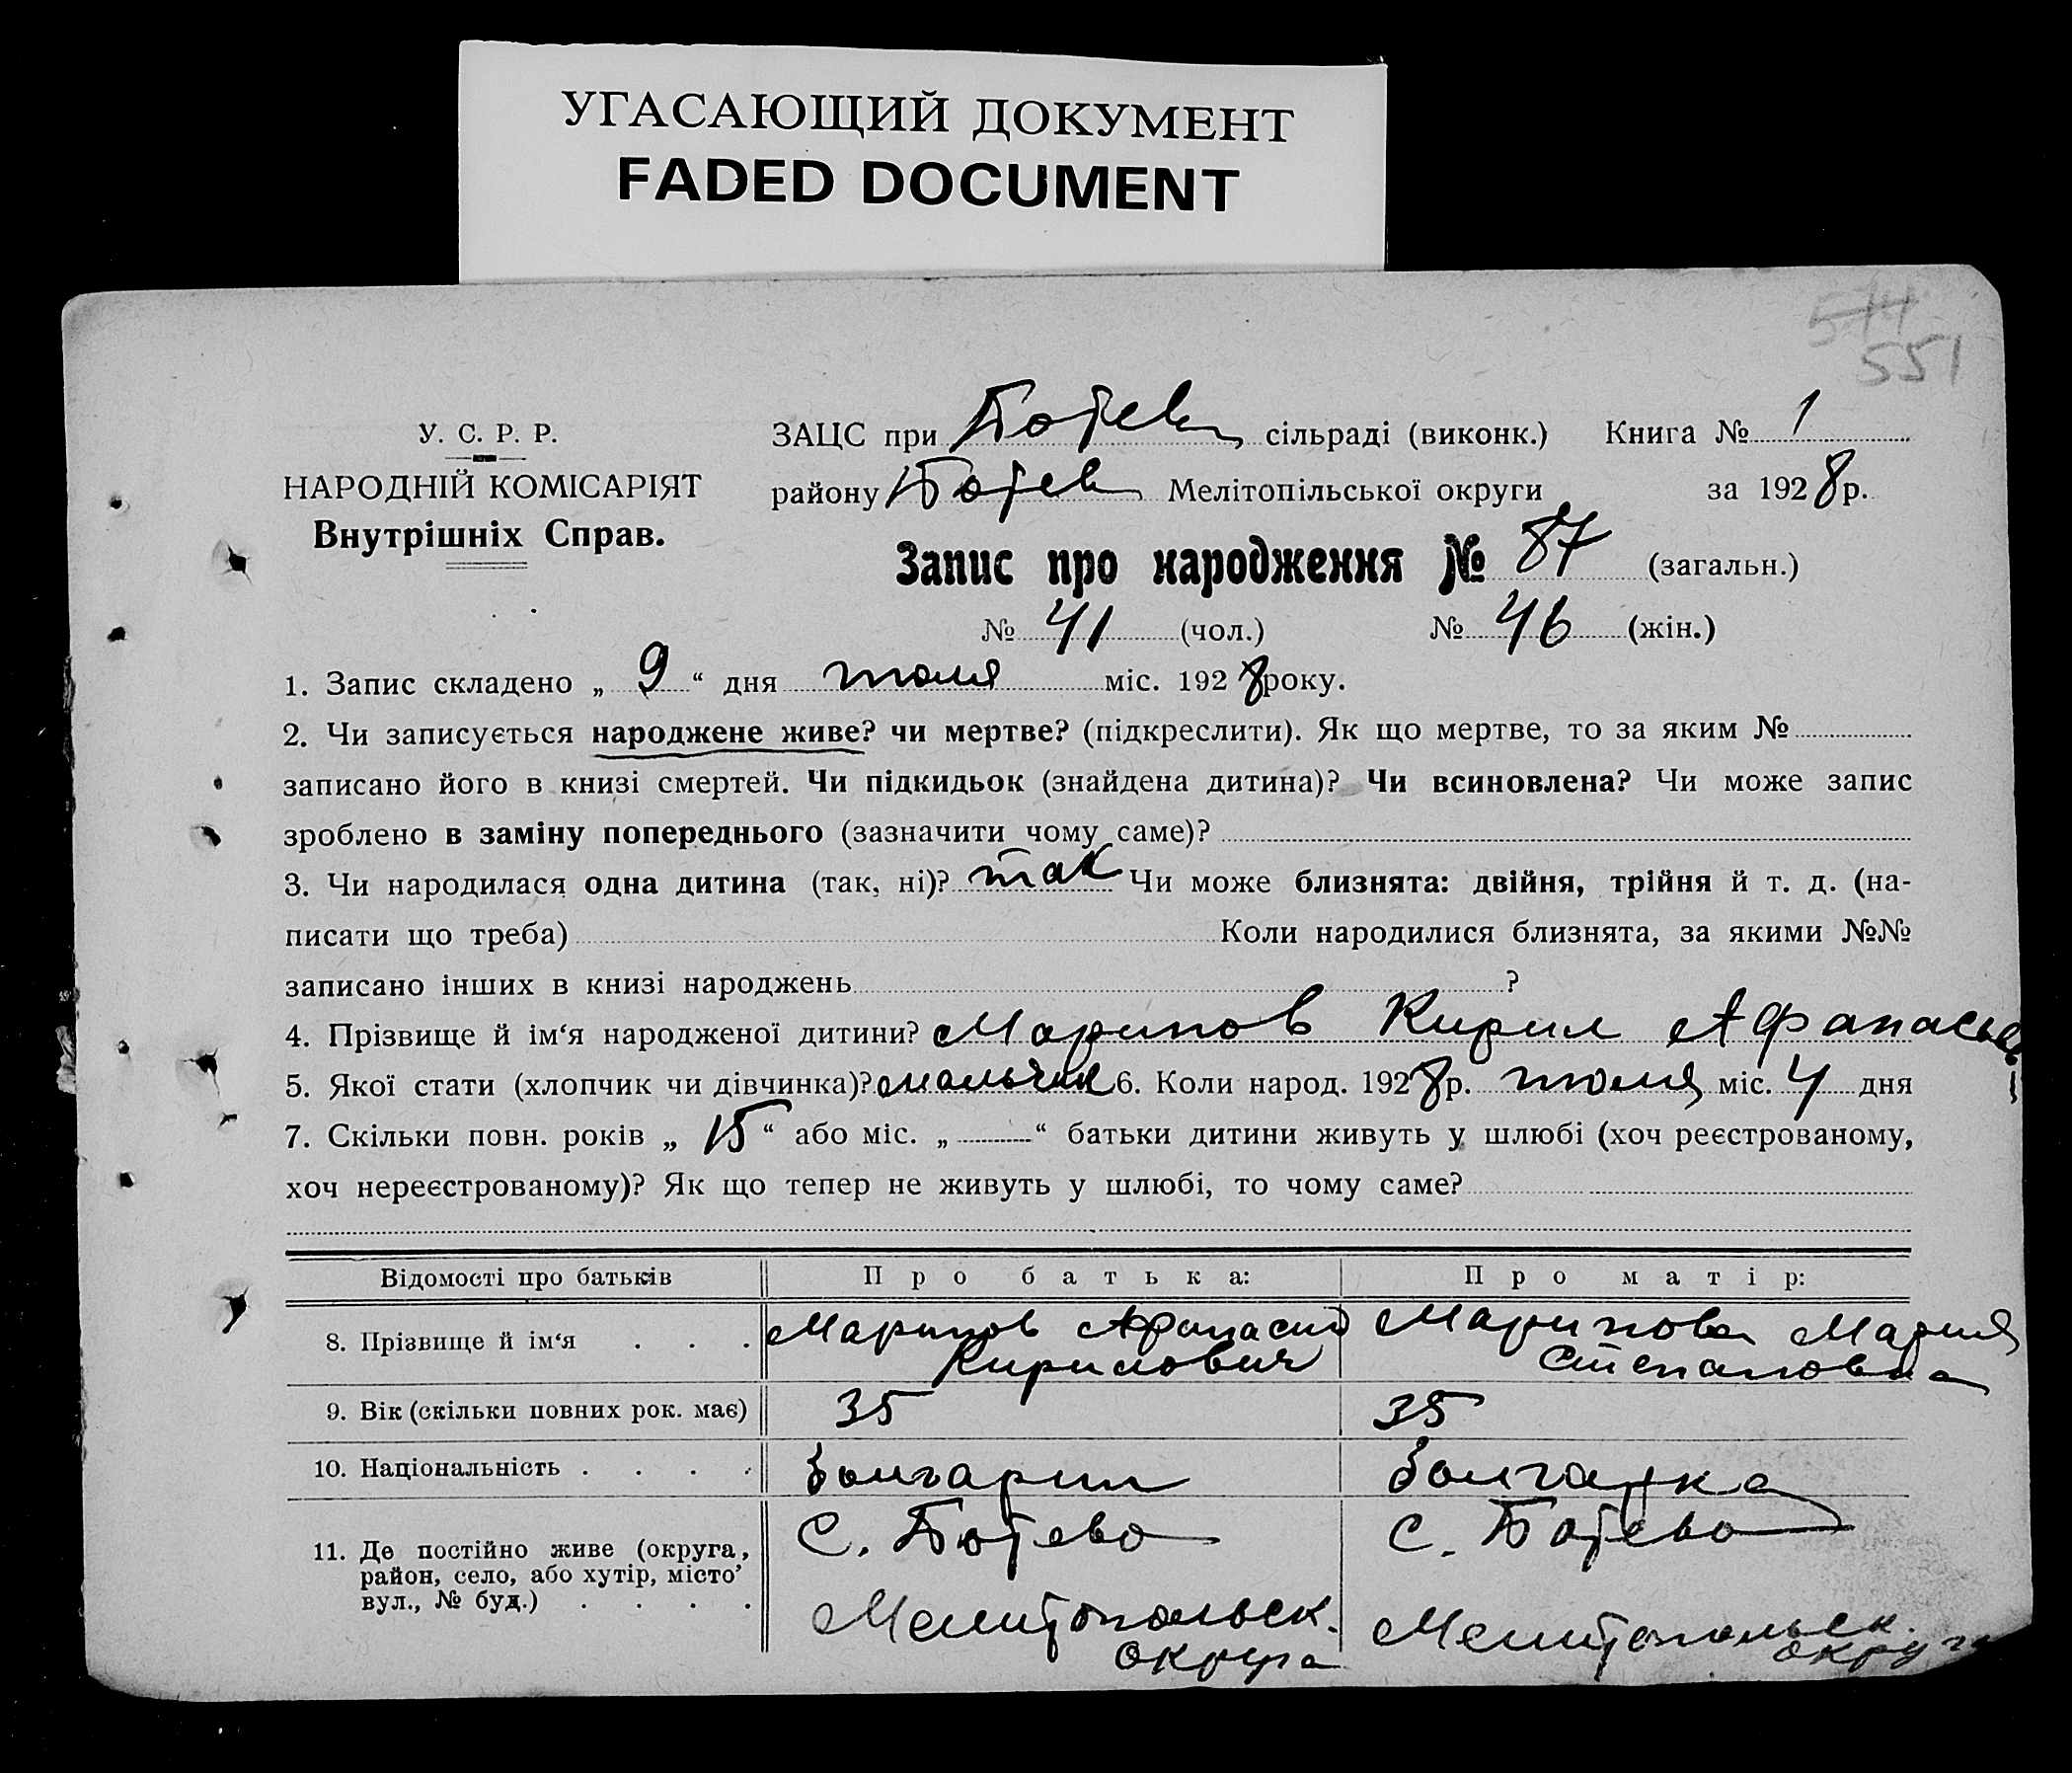 УГАСАЮЩИЙ ДОКУМЕНТ
FADED DOCUMENT
574
551
У. С. Р. Р.
НАРОДНІЙ КОМІСАРІЯТ
Внутрішніх Справ.
ЗАЦС при Ботев сільраді (виконк.) Книга № 1
району Ботев Мелітопільської округи за 1928р.
Запис про народження № 87 (загальн.)
№ 41 (чол.) № 46 (жін.)
1. Запис складено „ 9 “ дня июля міс. 1928 року.
2. Чи записується народжене живе? чи мертве? (підкреслити). Як що мертве, то за яким №
записано його в книзі смертей. Чи підкидьок (знайдена дитина)? Чи всиновлена? Чи може запис
зроблено в заміну попереднього (зазначити чому саме)?
3. Чи народилася одна дитина (так, ні)? так Чи може близнята: двійня, трійня й т. д. (на-
писати що треба) Коли народилися близнята, за якими №№
записано інших в книзі народжень ?
4. Прізвище й ім‘я народженої дитини? Маринов Кирил Афанасьев
5. Якої стати (хлопчик чи дівчинка)? мальчик 6. Коли народ. 1928р. июля міс. 4 дня
7. Скільки повн. років „ 15 “ або міс. „ “ батьки дитини живуть у шлюбі (хоч реєстрованому,
хоч нереєстрованому)? Як що тепер не живуть у шлюбі, то чому саме?
Відомості про батьків Про батька: Про матір:
8. Прізвище й ім‘я . . . Маринов Афанасий Маринова Мария
Кирилович Степановна
9. Вік (скільки повних рок. має) 35 35
10. Національність . . . . Болгарин Болгарка
11. Де постійно живе (округа, С. Ботево С. Ботево
район, село, або хутір, місто’
вул., № буд.) . . . . Мелитопольск. Мелитопольск.
округа округа